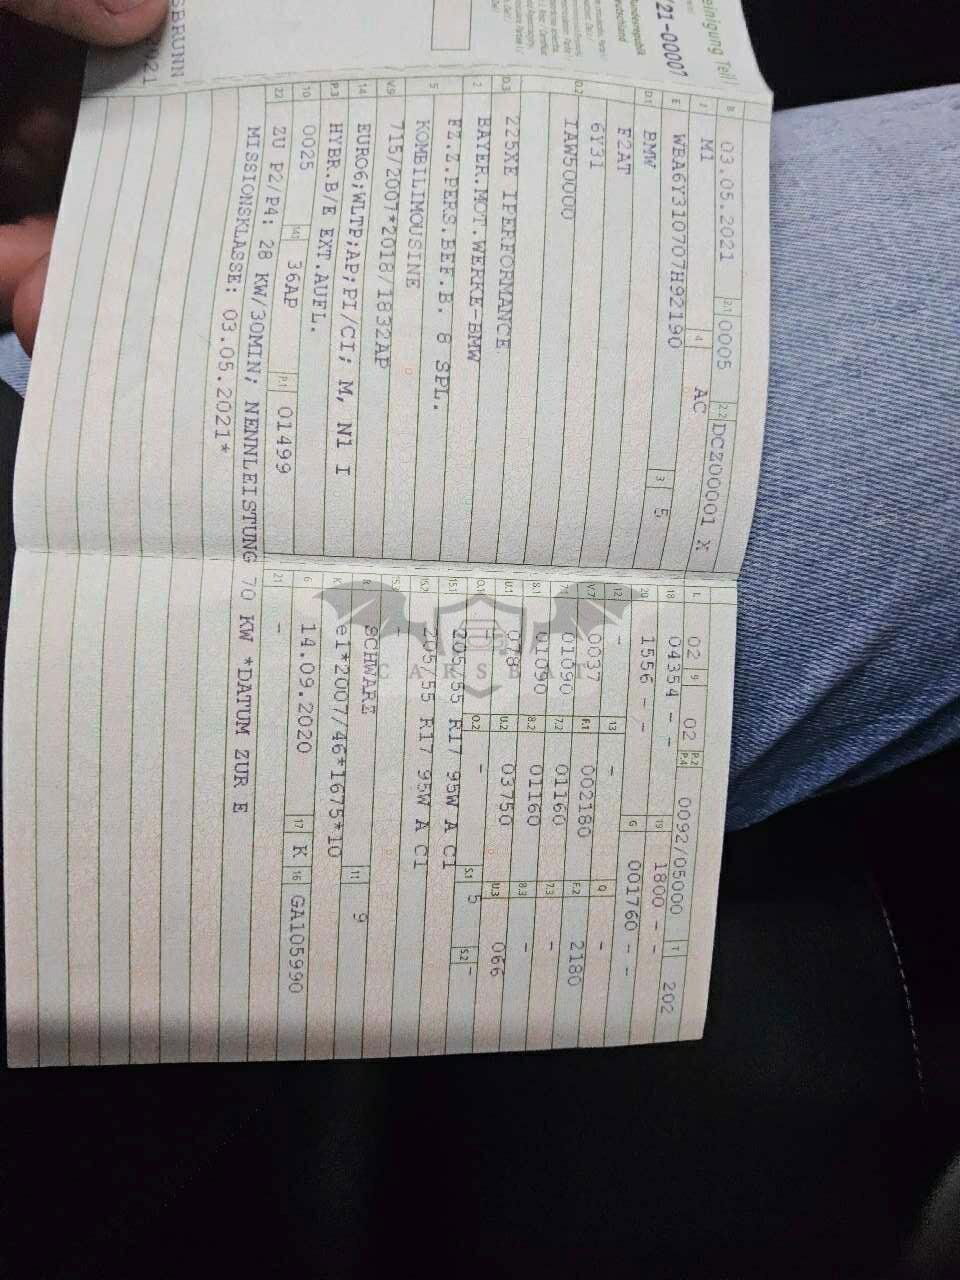 einigung Teil
/21-00007
Bundesrepublik
SBRUNN
2021
B 03.05.2021 2.1 0005 2.2 DCZ00001 X
J M1 4 AC
E WBA6Y310707H92190 3 5
D.1 BMW
F2AT
6Y31
D.2 IAW50000
D.3 225XE IPERFORMANCE
2 BAYER.MOT.WERKE-BMW
FZ.Z.PERS.BEF.B. 8 SPL.
5 KOMBILIMOUSINE
V.9 715/2007*2018/1832AP
14 EURO6;WLTP;AP;PI/CI; M, N1 I
P.3 HYBR.B/E EXT.AUFL.
10 0025 14.1 36AP P.1 01499
22 ZU P2/P4: 28 KW/30MIN; NENNLEISTUNG 70 KW *DATUM ZUR E
MISSIONSKLASSE: 03.05.2021*
L 02 9 02 P.2 P.4 0092/05000 T 202
18 04354 - - 19 1800 - -
20 1556 - - G 001760 - -
12 - 13 - Q -
V.7 0037 F.1 002180 F.2 2180
7.1 01090 7.2 01160 7.3 -
8.1 01090 8.2 01160 8.3 -
U.1 078 U.2 03750 U.3 066
O.1 O.2 - S.1 5 S.2 -
15.1 205/55 R17 95W A C1
15.2 205/55 R17 95W A C1
-
R SCHWARZ 11 9
K e1*2007/46*1675*10
6 14.09.2020 17 K 16 GA105990
21 -
CARSBAT